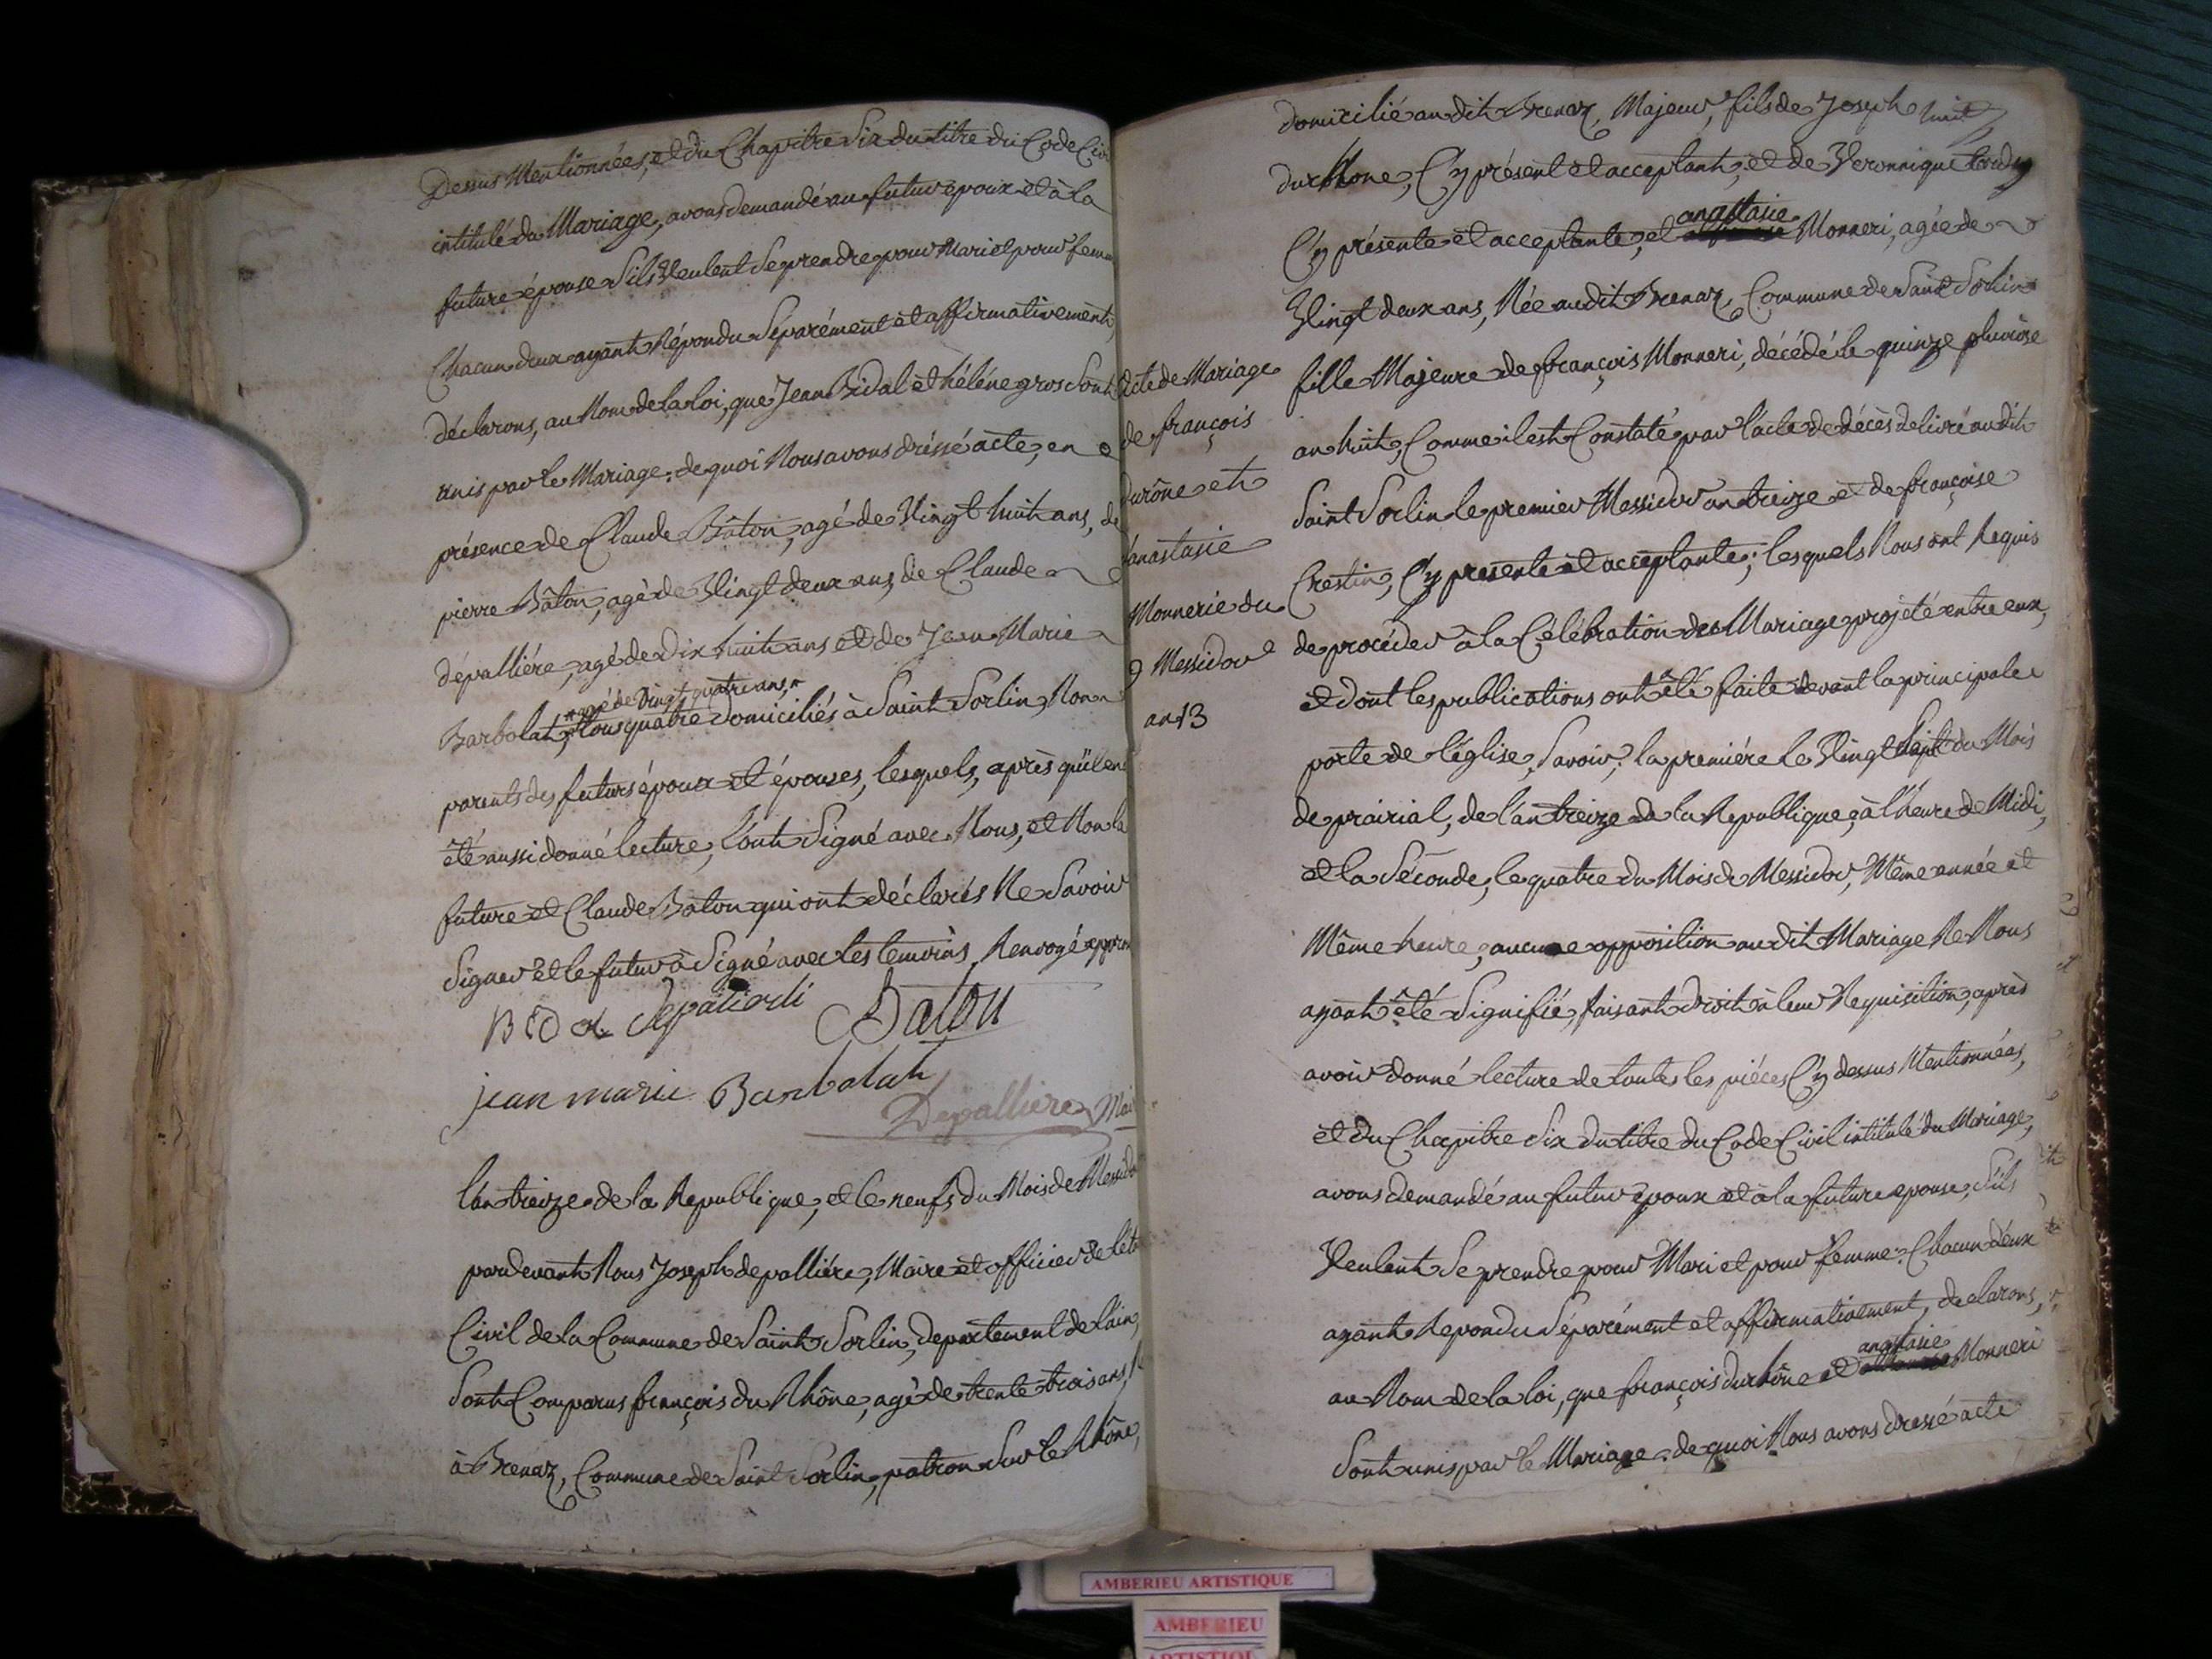 Dessus Mentionnées, et du Chapitre Six du titre du Code Civ
intitulé du Mariage, avons demandé au futur époux et à la
future épouse S'ils Veulent Se prendre pour Mari et pour femm
Chacun deux ayant Répondu Séparément et affirmativement,
déclarons, au Nom de la loi, que Jean Bidal et héléne gros Sont
unis par le Mariage: de quoi Nous avons dréssé acte, en
présence de Claude Bâton, agé de Vingt huit ans, de
pierre Bâton, agé de Vingt deux ans, de Claude
dépalliére, agé de Dix huit ans et de Jean Marie
agé de Vingt quatre ans,
Barbolat, tous quatre domiciliés à Saint Sorlin, Non
parents des futurs époux et épouses, lesquels, après qu'il en
été aussi donné lecture, l'ont Signé avec Nous, et Non la
future et Claude Bâton qui ont déclarés Ne Savoir
Signer et le futur à Signé avec les temoins, Renvoyé approu
Bidal Depaliordi Baton
jean marie Barbolat
Depalliere, Mai
l'an treize de la Republique, et le neuf du Mois de Messidor
pardevant Nous Joseph depalliére, Maire et officier de l'éta
Civil de la Commune de Saint Sorlin, departement de l'ain,
Sont Comparus françois du Rhône, agé de trente trois ans,
à Brenaz, Commune de Saint Sorlin, patron Sur le Rhône,
acte de Mariage
de françois
durône et
anastasie
Monnerie du
9 Messidor
an 13
domicilié au dit Brenaz, Majeur, fils de Joseph
durhone, C'y présent et acceptant, et de Veronnique
anastasie
C'y présente et acceptante, et Monneri, agée de
Vingt deux ans, Née audit Brenaz, Commune de Saint Sorlin
fille Majeure de françois Monneri, décédé le quinze pluviose
an huit, Comme il est Constaté par l'acte de décès delivré audit
Saint Sorlin le premier Messidor an treize et de françoise
Crestin, C'y presente et acceptante; lesquels Nous ont Requis
de procéder à la Célébration des Mariage projeté entre eux,
et dont les publications ont été faite devant la principale
porte de l'église, Savoir, la premiére le Vingt Sept du Mois
de prairial, de l'an treize de la Republique, à l'heure de Midi,
et la Séconde, le quatre du Mois de Messidor, Même année et
Même heure; aucune opposition audit Mariage Ne Nous
ayant été Signifié, faisant droit à leur Requisition, après
avoir donné lecture de toutes les piéces C'y dessus Mentionnées,
et du Chapitre Six du titre du Code Civil intitulé du Mariage,
avons demandé au futur époux et à la future epouse, S'ils
Veulent Se prendre pour Mari et pour femme: Chacun d'eux
ayant Repondu Séparément et affirmativement, declarons,
anastasie
au Nom de la loi, que françois durhône et Monneri
Sont unis par le Mariage: de quoi Nous avons dressé acte
AMBERIEU ARTISTIQUE
AMBERIEU
ARTISTIQUE